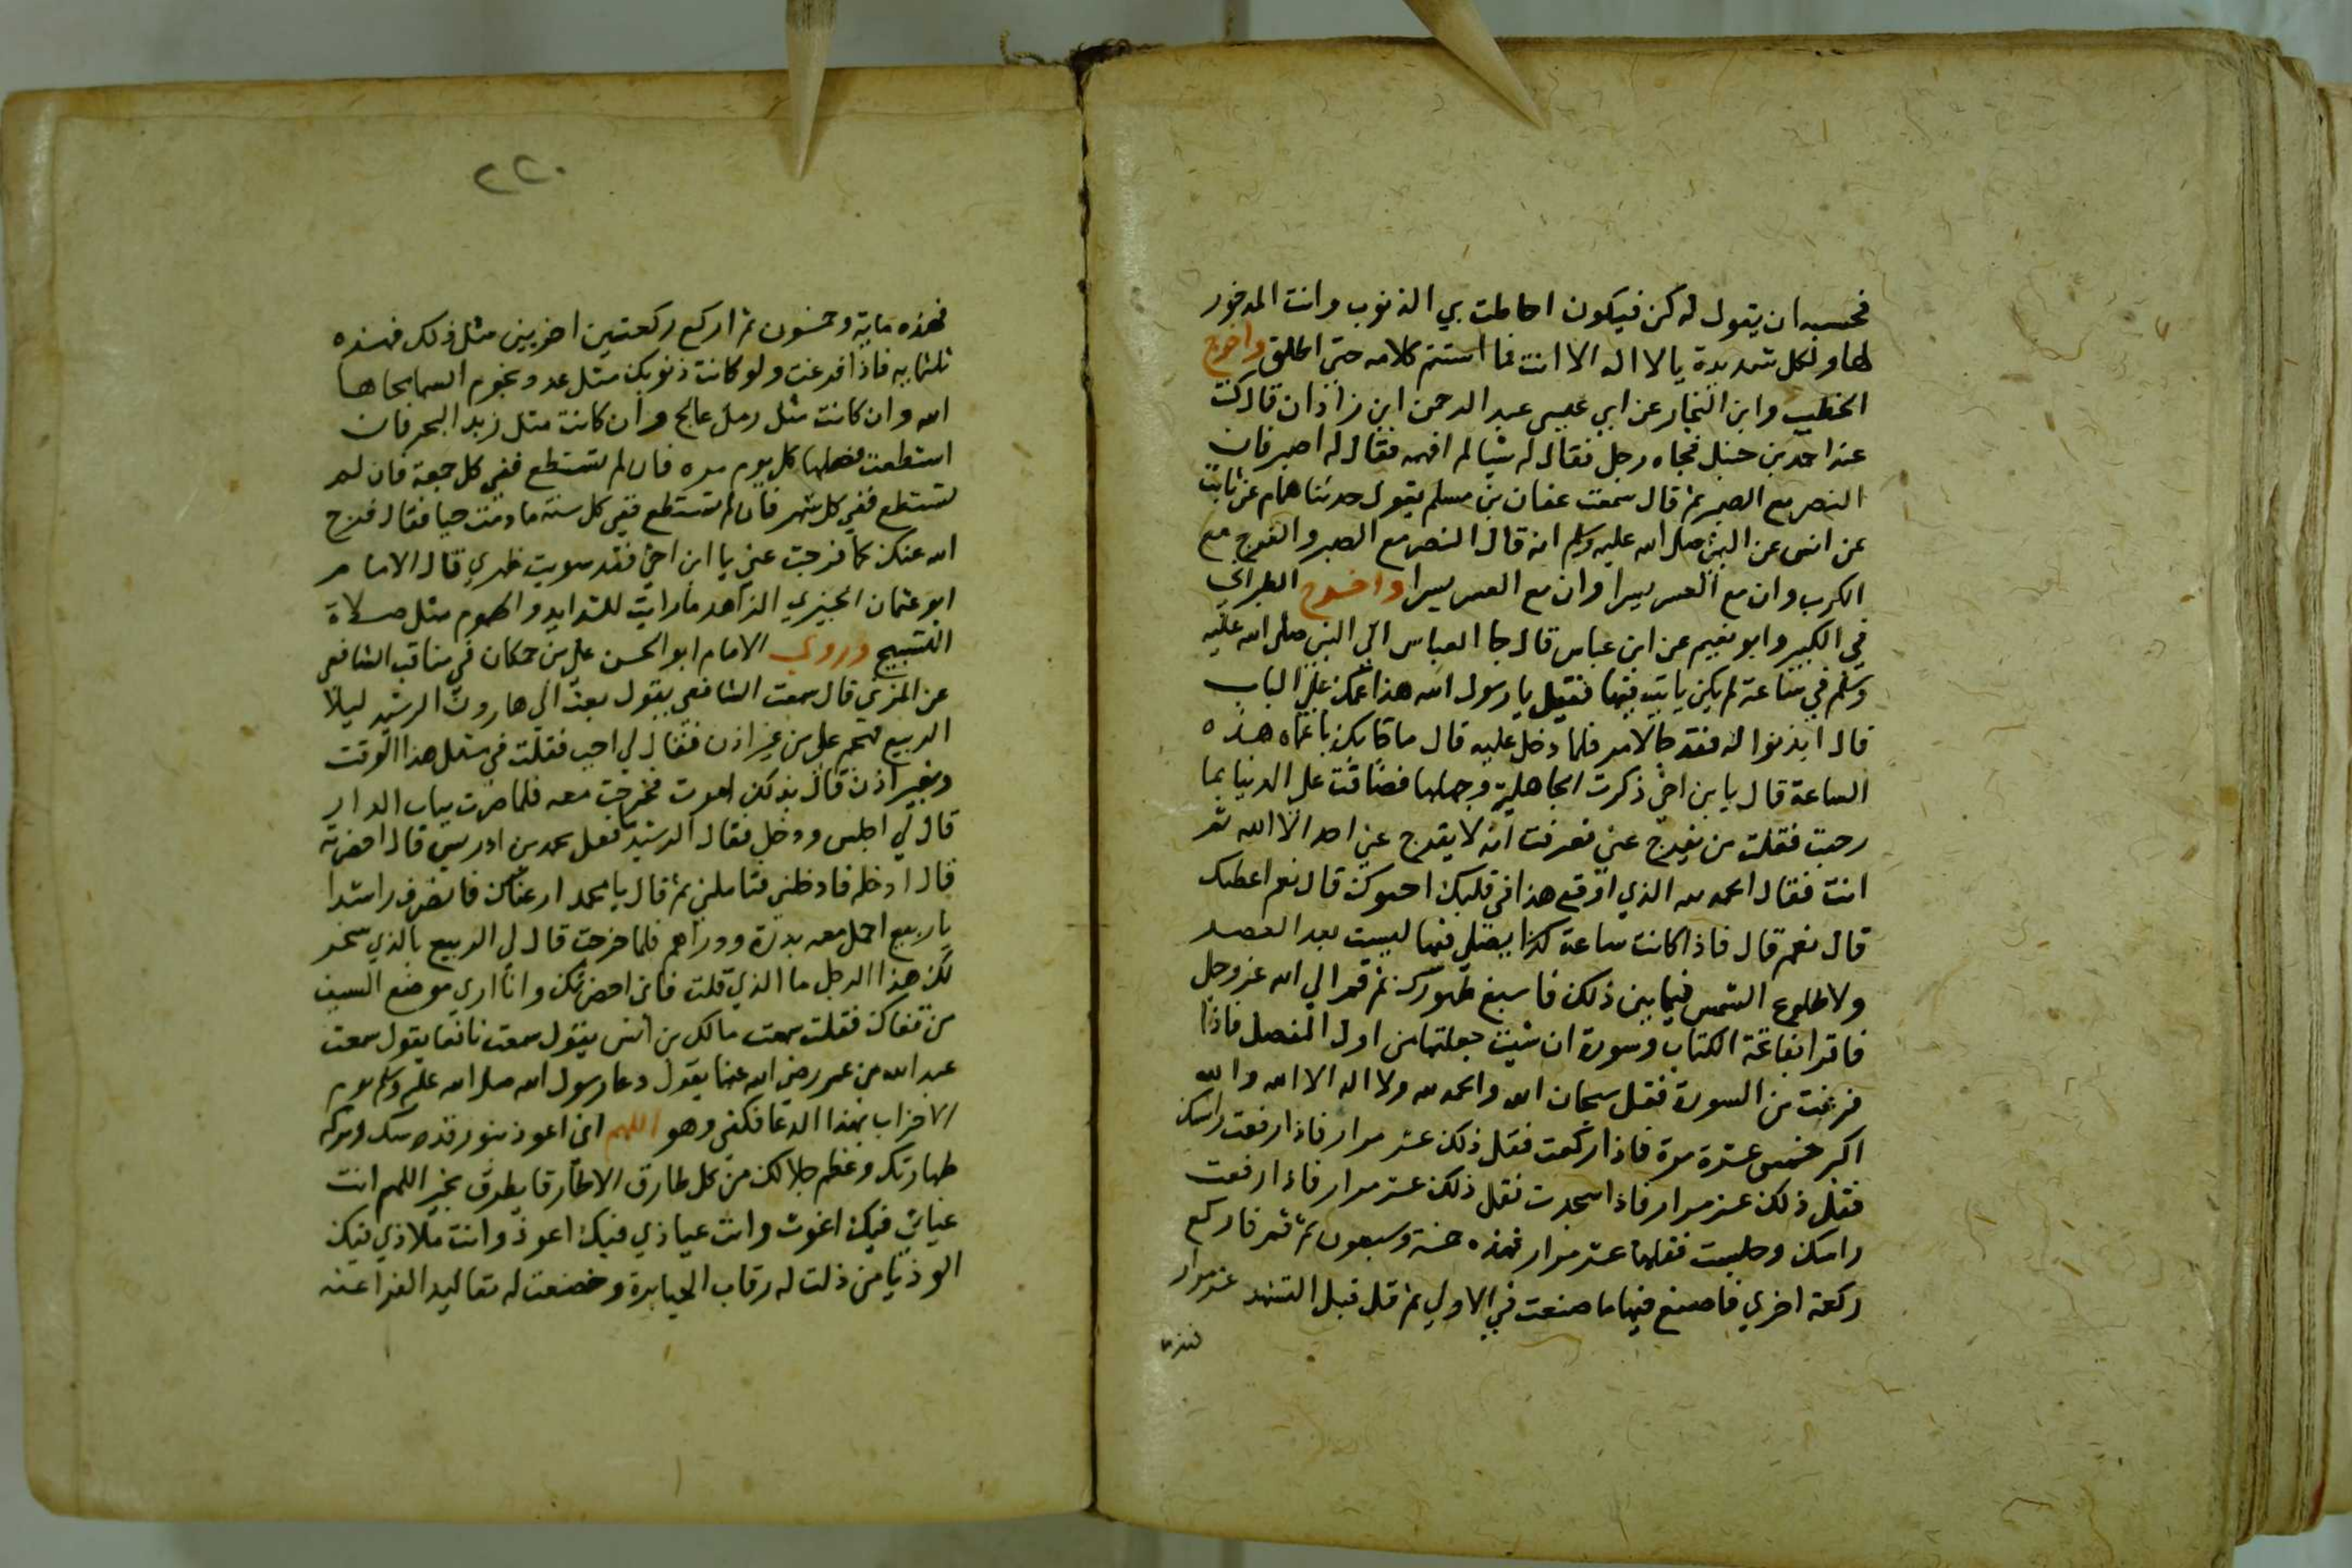 فحسبه ان يقول له كن فيكون احاطت بي الذنوب وانت المدخور
لها ولكل شديدة يا لا اله الا انت فما استتم كلامه حتى اطلق واخرج
الخطيب وابن النجار عن ابي عيسى عبد الرحمن ابن زاذان قال كنت
عند احمد بن حنبل فجاه رجل فقال له شيا لم افهمه فقال له اصبر فان
النصر مع الصبر ثم قال سمعت عفان بن مسلم يقول حدثنا همام عن ثابت
عن انس عن النبي صلى الله عليه وسلم انه قال النصر مع الصبر والفرج مع
الكرب وان مع العسر يسرا وان مع العسر يسرا واخرج الطبراني
في الكبير وابو نعيم عن ابن عباس قال جا العباس الى النبي صلى الله عليه
وسلم في ساعة لم يكن ياتيه فيها فقيل يا رسول الله هذا عمك على الباب
قال ايذنوا له فقد جا لامر فلما دخل عليه قال ما جا بك يا عماه هذه
الساعة قال يا بن اخي ذكرت الجاهلية وجهلها فضاقت علي الدنيا بما
رحبت فقلت من يفرج عني فعرفت انه لا يفرج عني احد الا الله ثم
انت فقال الحمد لله الذي اوقع هذا في قلبك احبوك قال نعم اعطيك
قال نعم قال فاذا كانت ساعة كذا يصلى فيها ليست بعد العصر
ولا طلوع الشمس فيما بين ذلك فاسبغ طهورك ثم قم الي الله عز وجل
فاقرا بفاتحة الكتاب وسورة ان شيت جعلتها من اول المفصل فاذا
فرغت من السورة فقل سبحان الله والحمد لله ولا اله الا الله والله
اكبر خمس عشرة مرة فاذا ركعت فقل ذلك عشر مرار فاذا رفعت راسك
فقل ذلك عشر مرار فاذا سجدت فقل ذلك عشر مرار فاذا رفعت
راسك وجلست فقلها عشر مرار فهذه خمسة وسبعون ثم قم فاركع
ركعة اخري فاصنع فيها ما صنعت في الاولي ثم قل قبل التشهد عشر مرار
فهذه
٢٢٠
فهذه ماية وخمسون ثم اركع ركعتين اخريين مثل ذلك فهذه
ثلثماية فاذا فرغت ولو كانت ذنوبك مثل عدد نجوم السما محاها
الله وان كانت مثل رمل عالج وان كانت مثل زبد البحر فان
استطعت فصلها كل يوم مرة فان لم تستطع ففي كل جمعة فان لم
تستطع ففي كل شهر فان لم تستطع ففي كل سنة ما دمت حيا فقال فرج
الله عنك كما فرجت عني يا ابن اخي فقد سويت ظهري قال الامام
ابو عثمان الحيري الزاهد ما رايت للشدايد والهموم مثل صلاة
التسبيح وروي الامام ابو الحسن علي بن حمكان في مناقب الشافعي
عن المزني قال سمعت الشافعي يقول بعث الي هارون الرشيد ليلا
الربيع فهجم علي من غير اذن فقال لي اجب فقلت في مثل هذا الوقت
وبغير اذن قال بذلك امرت فخرجت معه فلما صرت بباب الدار
قال لي اجلس ودخل فقال الرشيد ما فعل محمد بن ادريس قال احضرته
قال ادخله فادخلني فتاملني ثم قال يا محمد ارعناك فانصرف راشدا
يا ربيع احمل معه بدرة دراهم فلما خرجت قال لي الربيع بالذي سخر
لك هذا الرجل ما الذي قلت فاني احضرتك وانا اري موضع السيف
من قفاك فقلت سمعت مالك بن انس يقول سمعت نافعا يقول سمعت
عبد الله بن عمر رضي الله عنهما يقول دعا رسول الله صلى الله عليه وسلم يوم
الاحزاب بهذا الدعا فكفي وهو اللهم اني اعوذ بنور قدسك وبركة
طهارتك وعظم جلالك من كل طارق الا طارقا يطرق بخير اللهم انت
غياثي فبك اغوث وانت عياذي فبك اعوذ وانت ملاذي فبك
الوذ يا من ذلت له رقاب الجبابرة وخضعت له مقاليد الفراعنه